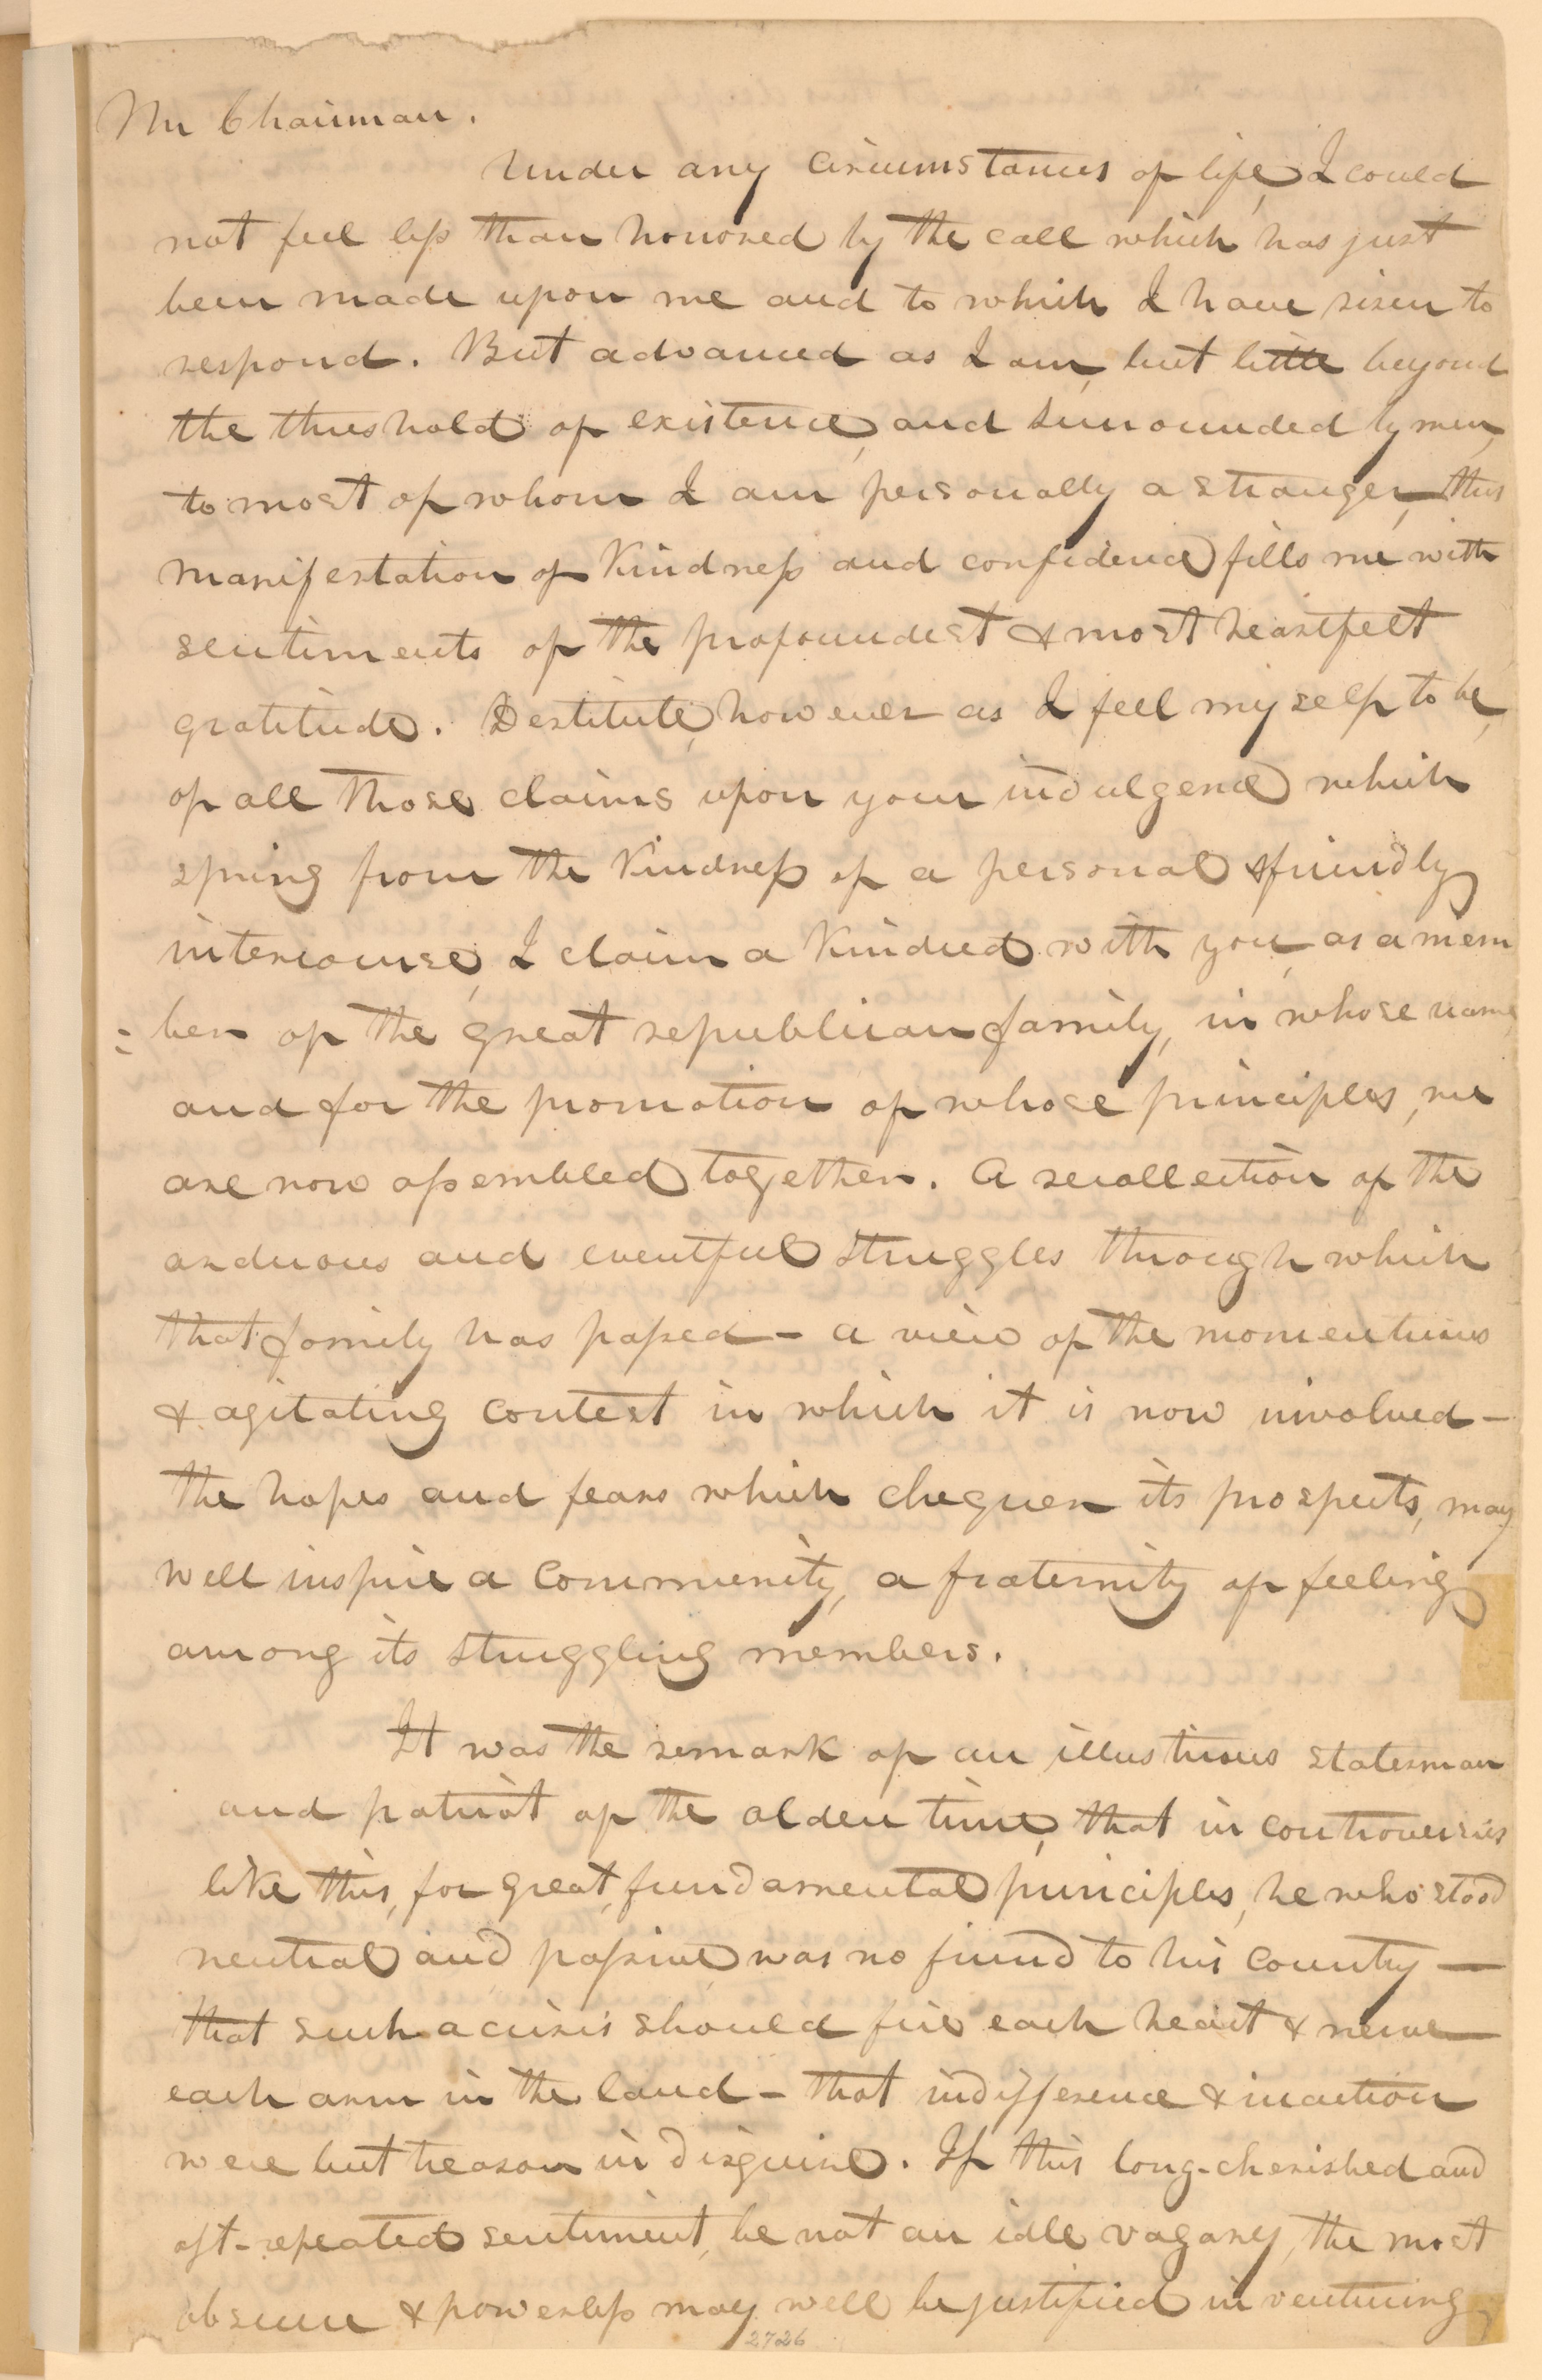 Mr Chairman.
Under any circumstances of life, I could
not feel less than honored by the call which has just
been made upon me and to which I have risen to
respond. But advanced as I am, but little beyond
the threshold of existence, and surrounded by men,
to most of whom I am personally a stranger, this
manifestation of Kindness and confidence fills me with
sentiments of the profoundest & most heartfelt
gratitude. Destitute, however as I feel myself to be,
of all those claims upon your indulgence which
spring from the Kindness of a personal & friendly
intercourse, I claim a Kindred with you, as a mem
= ber of the great republican family, in whose name,
and for the promotion of whose principles, we
are now assembled together. A recollection of the
arduous and eventful struggles through which
that family has passed - a view of the momentuous
& agitating contest in which it is now involved -
the hopes and fears which chequer its prospects, may
well inspire a community, a fraternity of feeling
among its struggling members.
It was the remark of an illustrious statesman
and patriot of the olden time, that in controversies
like this, for great, fundamental principles, he who stood
neutral and passive, was no friend to his country —
that such a crisis should fire each heart & nerve
each arm in the land - that indifference & inaction
were but treason in disguise. If this long-cherished and
oft-repeated sentiment, be not an idle vagary, the most
obscure & powerless may well be justified in venturing,
2726